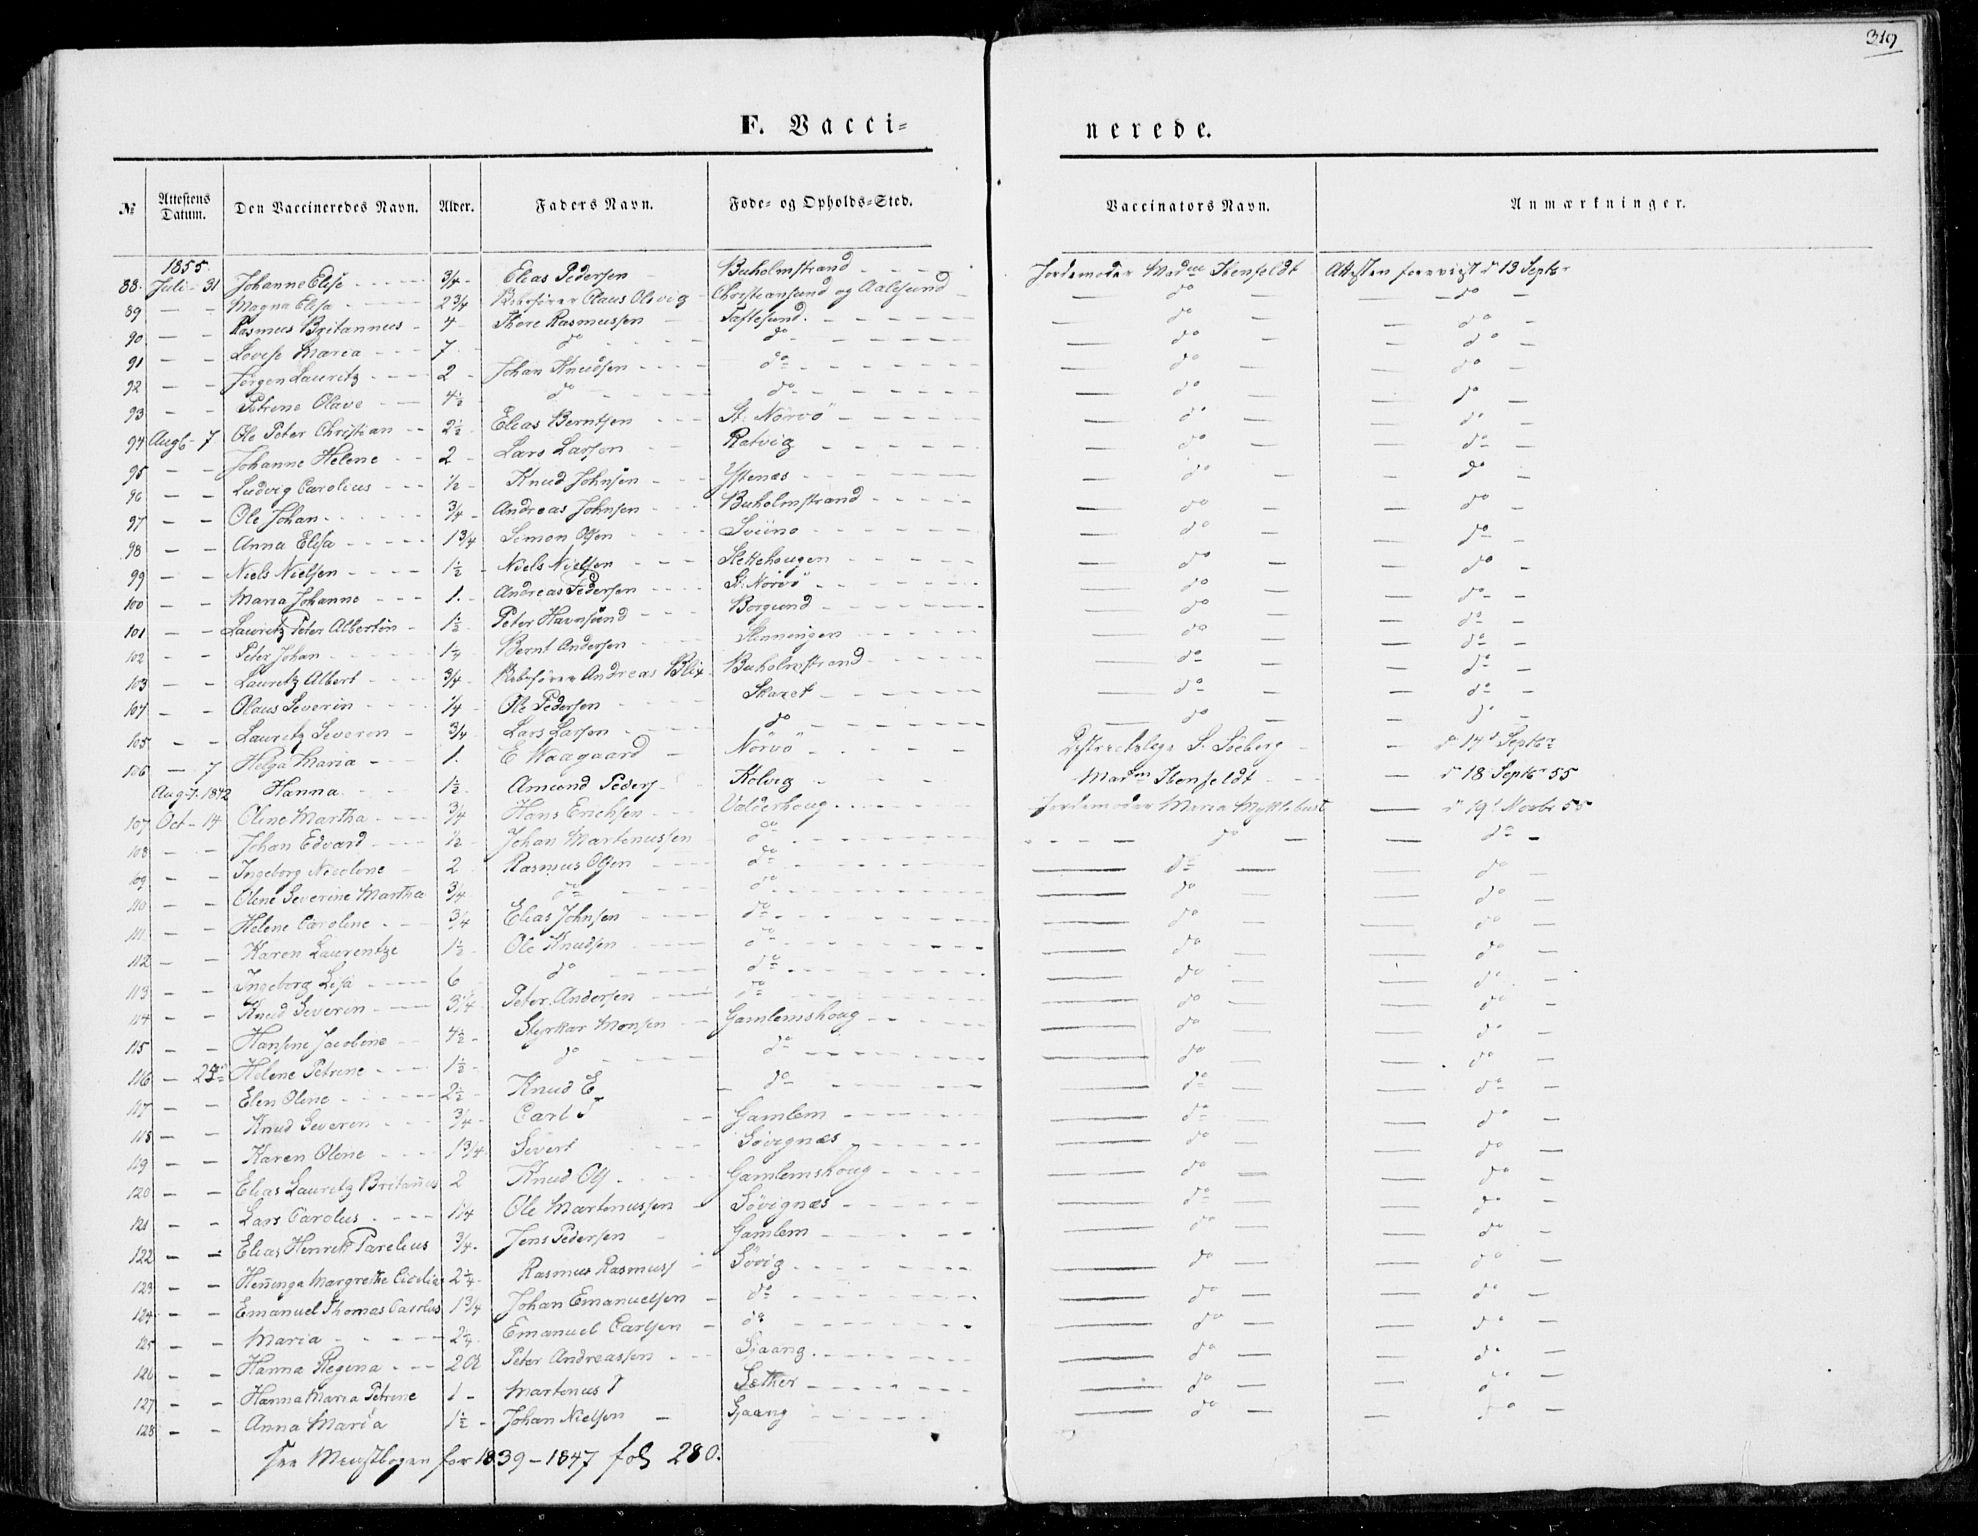 319
F. Vacci-
nerede.
№ Attestens Datum. Den Vaccineredes Navn. Alder. Faders Navn. Føde- og Opholds-Sted. Vaccinators Navn. Anmærkninger.
1855
88. Juli - 31 Johanne Elise 3/4 - Elias Pedersen Buholmstrand Jordemoder Mad Ibenfeldt Attesten foreviist d 13 Septbr
89 — - Magna Elisa 2 3/4 Olaus Olsvig Christiansund og Aalesund — do — — do —
90 — - Rasmus Britannus - 4 - Thore Rasmussen Taftesund. — do — — do —
91 — - Lovise Maria 7 do do — do — — do —
92 — - Jørgen Lauritz 2 - Johan Knudsen do — do — — do —
93 — - Petrine Olave 4 1/2 do do — do — — do —
94 Augb - 7 Ole Peter Christian 2 1/2 Elias Berntsen St: Nørvø — do — — do —
95 — - Johanne Helene 2 - Lars Larsen Ratvig — do — — do —
96 — - Ludvig Carolius 1/2 - Knud Johnsen Ystenæs — do — — do —
97 — - Ole Johan 3/4 - Andreas Johnsen Buholmstrand — do — — do —
98 — - Anna Elisa 1 3/4 Simon Olsen — do — — do —
99 — - Niels Nielsen 1 1/2 - Niels Nielsen Slettehougen — do — — do —
100 — - Maria Johanne 1. - Andreas Pedersen St: Nørvø — do — — do —
101 — - Lauritz Peter Albertin - 1 1/2 - Peter Havnsund Borgund — do — — do —
102 — - Peter Johan 1 1/4 - Bernt Andersen Slinningen — do — — do —
103 — - Lauritz Albert 3/4 - Andreas Blix Buholmstrand — do — — do —
104 — - Olaus Severin 1/4 - Ole Pedersen Skaret — do — — do —
105 — - Lauritz Severin - 3/4 - Lars Larsen do — do — — do —
106 — 7 Helga Maria 1. E Waagaard Nørvø Distrectslæge S. Søeberg — d 14d Septbr
Aug. 7. 1842 Hanna 1 1/2 - Amund Peders Kolvig Mad Ibenfeldt — d 18 Septbr 55
107 Oct - 14 Oline Martha 3/4 Hans Erichsen Valderhoug Jordemoder Maria Myklebust — d 19d Novbr 55
108 — - Johan Edvard 1/2 Johan Martinussen do do — — do -
109 — - Ingeborg Nicoline 2 Rasmus Olsen do — do — — do —
110 — - Oline Severine Martha 3/4 do do — do — — do —
111 — - Helene Caroline 3/4 Elias Johnsen do — do — — do —
112 — - Karen Laurentze 1 1/2 - Ole Knudsen do — do — — do —
113 — - Ingeborg Lisa 6 do do — do — — do —
114 — - Knud Severin 3 1/4 Peter Andersen do — do — — do —
115 — - Hansine Jacobine 4 1/2 - Styrkar Monsen Gamlemshoug — do — — do —
116 — Helene Petrine 1 1/2 - do do — do — — do —
117 — - Elen Oline 2 1/2 - Knud E do — do — — do —
118 — - Knud Severin 3/4 - Carl T Gamlem — do — — do —
119 — - Karen Oline 1 3/4 Sivert Søvignæs — do — — do —
120 — - Elias Lauritz Britanus 2 Knud Ols Gamlemshoug — do — — do —
121 — - Lars Carolus 1 1/4 Ole Martinussen Søvignæs — do — — do —
122 — - Elias Henrik Parelius 3/4. Jens Pedersen Gamlem — do — — do —
123 — - Heninga Margrethe Cicilie 2 1/4 - Rasmus Rasmuss Søvig — do — — do —
124 — - Emanuel Thomas Carolus 1 3/4 Johan Emanuelsen do — do — — do —
125 — - Maria 2 1/4 Emanuel Carlsen do — do — — do —
126 — - Hanna Regina 2 Peter Andreassen Gjaang — do — — do —
127 — - Hanna Maria Petrine 1 - Martinus T Sæther — do — — do —
128 — - Anna Maria 1 1/2 - Johan Nielsen Gjaang — do — — do —
See for 1839-1847 fol 280.